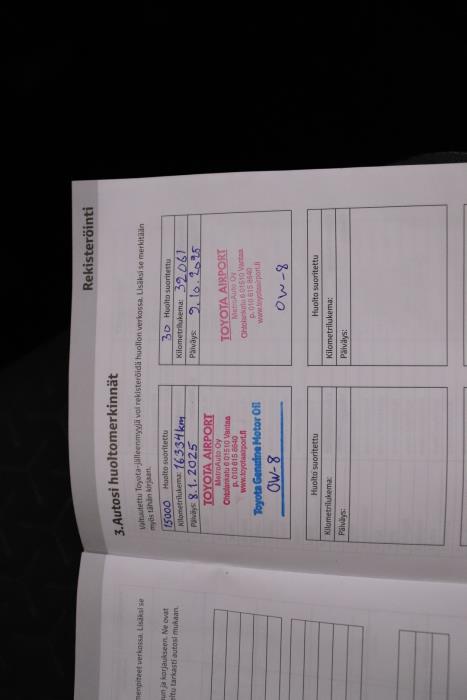 Rekisteröinti
3.Autosi huoltomerkinnät
Valtuutettu Toyota-jälleenmyyjä voi rekisteröidä huollon verkossa. Lisäksi se merkitään
myös tähän kirjaan.
15000 Huolto suoritettu
Kilometrilukema: 16334km
Päiväys: 8.1.2025
TOYOTA AIRPORT
MetroAuto Oy
Ohtolankatu 6 01510 Vantaa
p. 010 615 8640
www.toyotaairport.fi
Toyota Genuine Motor Oil
OW-8
30 Huolto suoritettu
Kilometrilukema: 32061
Päiväys: 9.10.2025
TOYOTA AIRPORT
MetroAuto Oy
Ohtolankatu 6 01510 Vantaa
p. 010 615 8640
www.toyotaairport.fi
OW-8
Huolto suoritettu
Kilometrilukema:
Päiväys:
Huolto suoritettu
Kilometrilukema:
Päiväys:
menpiteet verkossa. Lisäksi se
un ja korjaukseen. Ne ovat
tu tarkasti autosi mukaan.